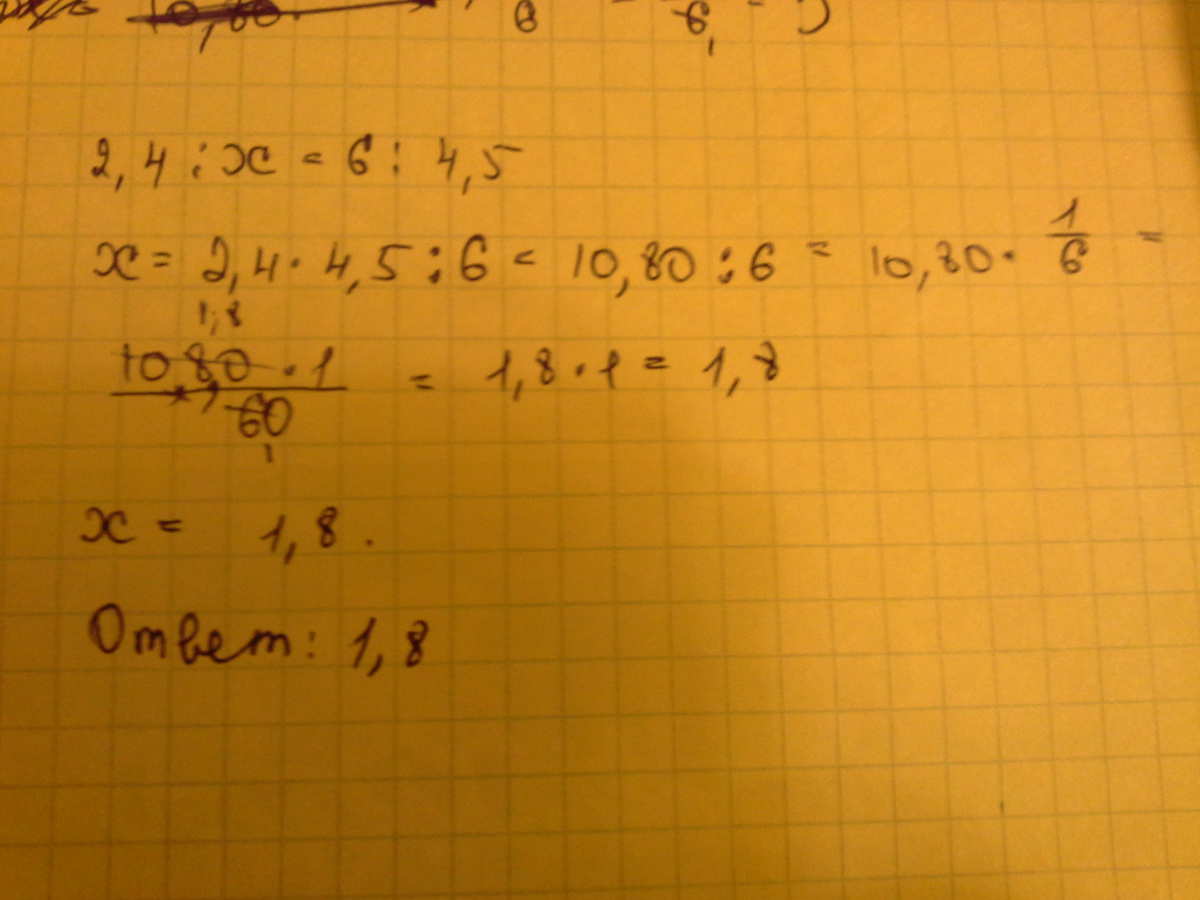 2,4 : x = 6 : 4,5
x = 2,4 · 4,5 : 6 = 10,80 : 6 = 10,80 · 1/6 =
1,8
10,80 · 1 / 60 = 1,8 · 1 = 1,8
1
x = 1,8.
Ответ: 1,8